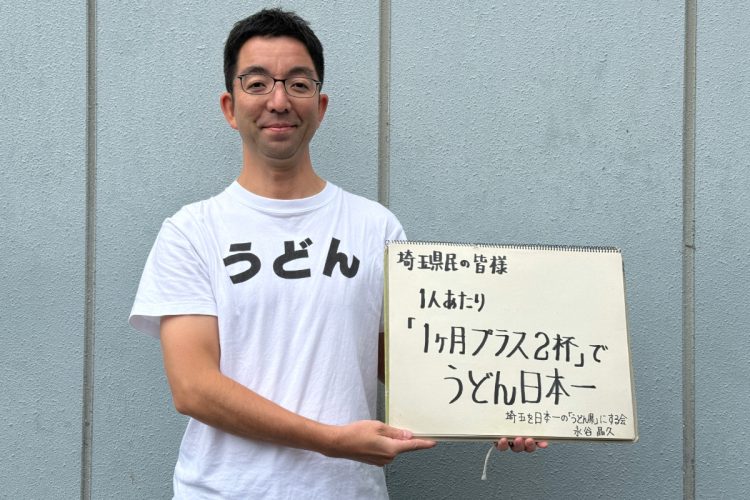 うどん
埼玉県民の皆様
1人あたり
「1ヶ月プラス2杯」で
うどん日本一
埼玉を日本一の「うどん県」にする会
永谷晶久